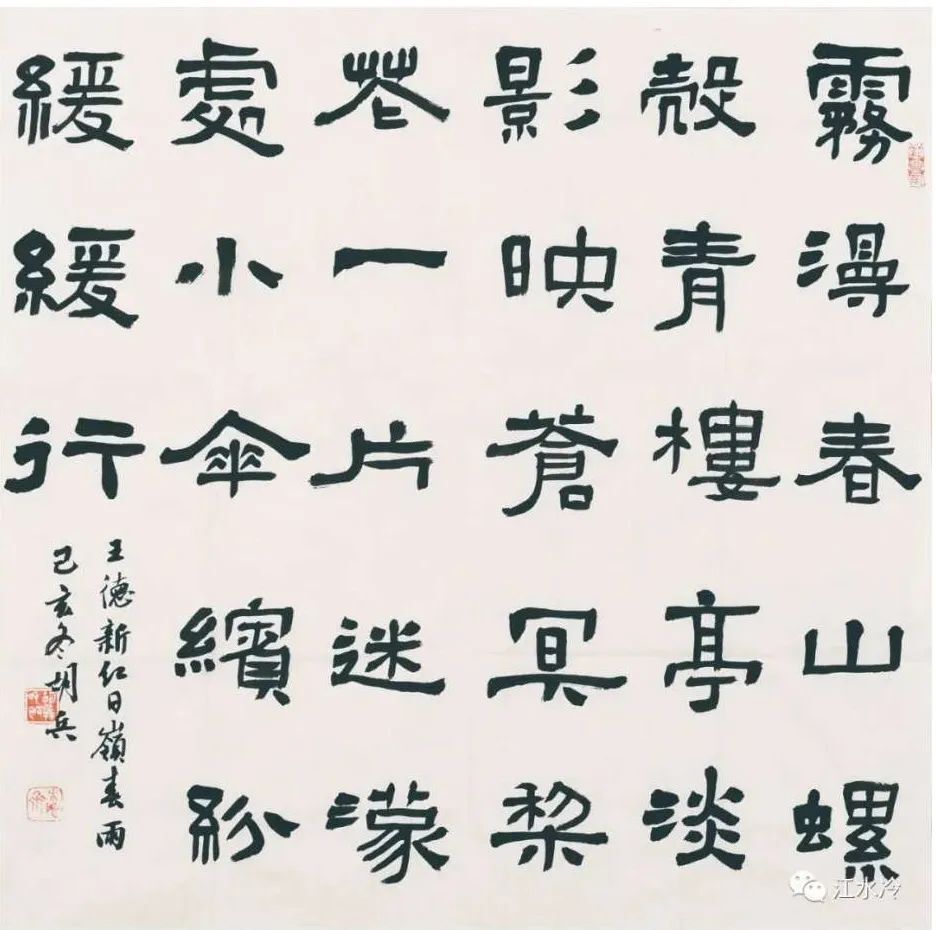 霧漫春山螺
殼青樓亭淡
影映蒼冥梨
花一片迷濛
處小傘繽紛
緩緩行
王德新紅日嶺春雨
己亥冬胡兵
江水冷